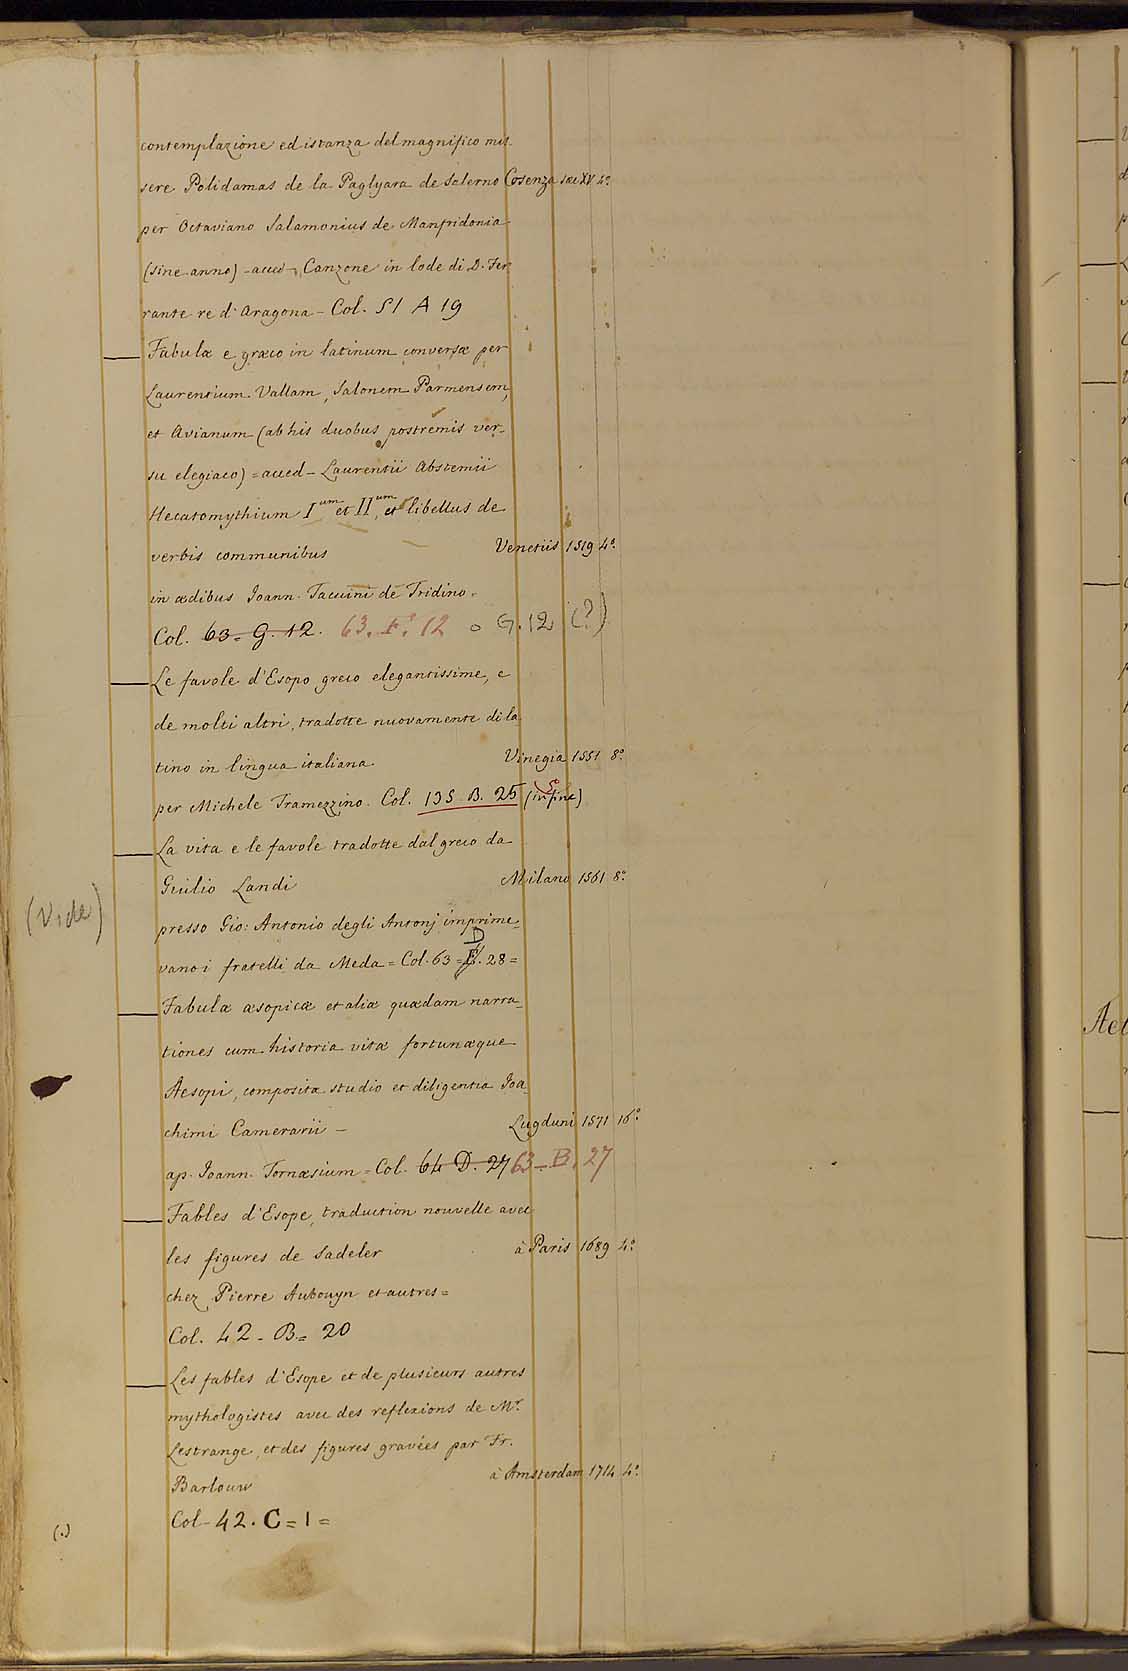 contemplazione ed istanza del magnifico mis-
sere Polidamas de la Paglyara de Salerno Cosenza sæc XV 4.º
per Octaviano Salamonius de Manfridonia
(sine anno) - acced - Canzone in lode di D. Fer
rante re d'Aragona - Col. 51 A 19
Fabulæ e græco in latinum conversæ per
Laurentium Vallam, Salonem Parmensem,
et Avianum (ab his duobus postremis ver-
su elegiaco) = acced - Laurentii Abstemii
Hecatomythium I um et II um, et libellus de
verbis communibus Venetiis 1519 4.º
in ædibus Joann. Tacuini de Tridino.
Col. 63 = G. 12. 63. F. 12 o G. 12 (?)
Le favole d'Esopo greco elegantissime, e
de molti altri, tradotte nuovamente di la
tino in lingua italiana. Vinegia 1551 8.º
per Michele Tramezzino. Col. 135. B. 25 (in fine)
La vita e le favole tradotte dal greco da
Giulio Landi Milano 1561 8.º
(Vide)
presso Gio: Antonio degli Antonj imprime-
D
vano i fratelli da Meda = Col. 63 = . 28 =
Fabulæ æsopicæ et aliæ quædam narra-
tiones cum historia vitæ fortunæque
Aesopi, composita studio et diligentia Joa
chimi Camerarii - Lugduni 1571 16.º
ap. Joann. Tornæsium = Col. 64 D. 27 63 - B. 27
Fables d'Esope, traduction nouvelle avec
les figures de Sadeler à Paris 1689 4.º
chez Pierre Aubouyn et autres =
Col. 42 - B = 20
Les fables d'Esope et de plusieurs autres
mythologistes avec des reflexions de Mr.
Lestrange, et des figures gravées par Fr.
Barlouw à Amsterdam 1714 4.º
Col - 42. C = 1 =
(.)
Ael